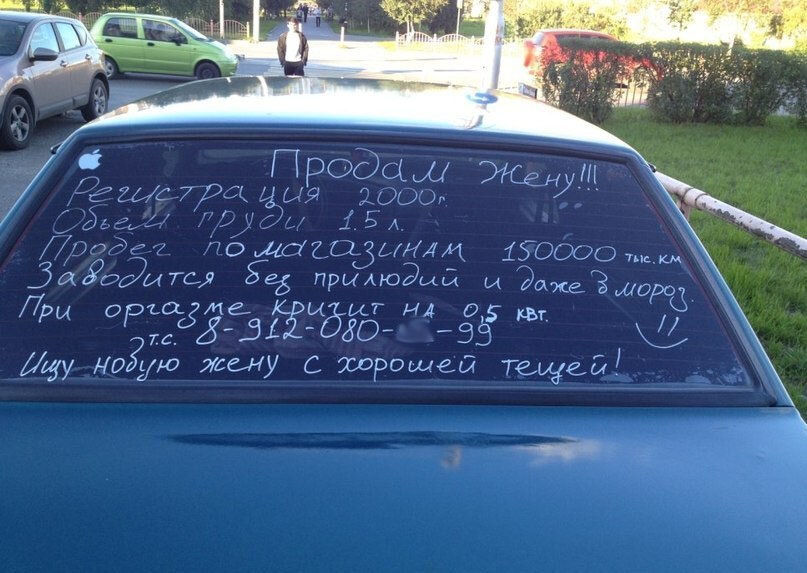 Продам жену!!!
Регистрация 2000г.
Объём груди 1.5 л.
Пробег по магазинам 150000 тыс. км
Заводится без прилюдий и даже в мороз.
При оргазме кричит на 0,5 квт.
Эт.с. 8-912-080- -99
Ищу новую жену с хорошей тещей!